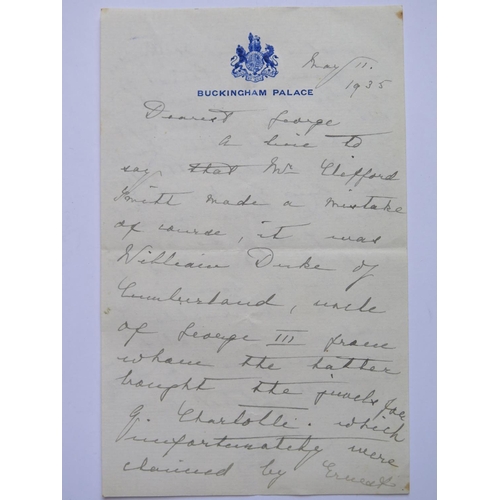 May 11.
1935
BUCKINGHAM PALACE
Dearest George
A line to
say that Mr Clifford
Smith made a mistake
of course, it was
William Duke of
Cumberland, uncle
of George III from
whom the latter
bought the jewels for
Q. Charlotte. which
unfortunately were
claimed by Ernest